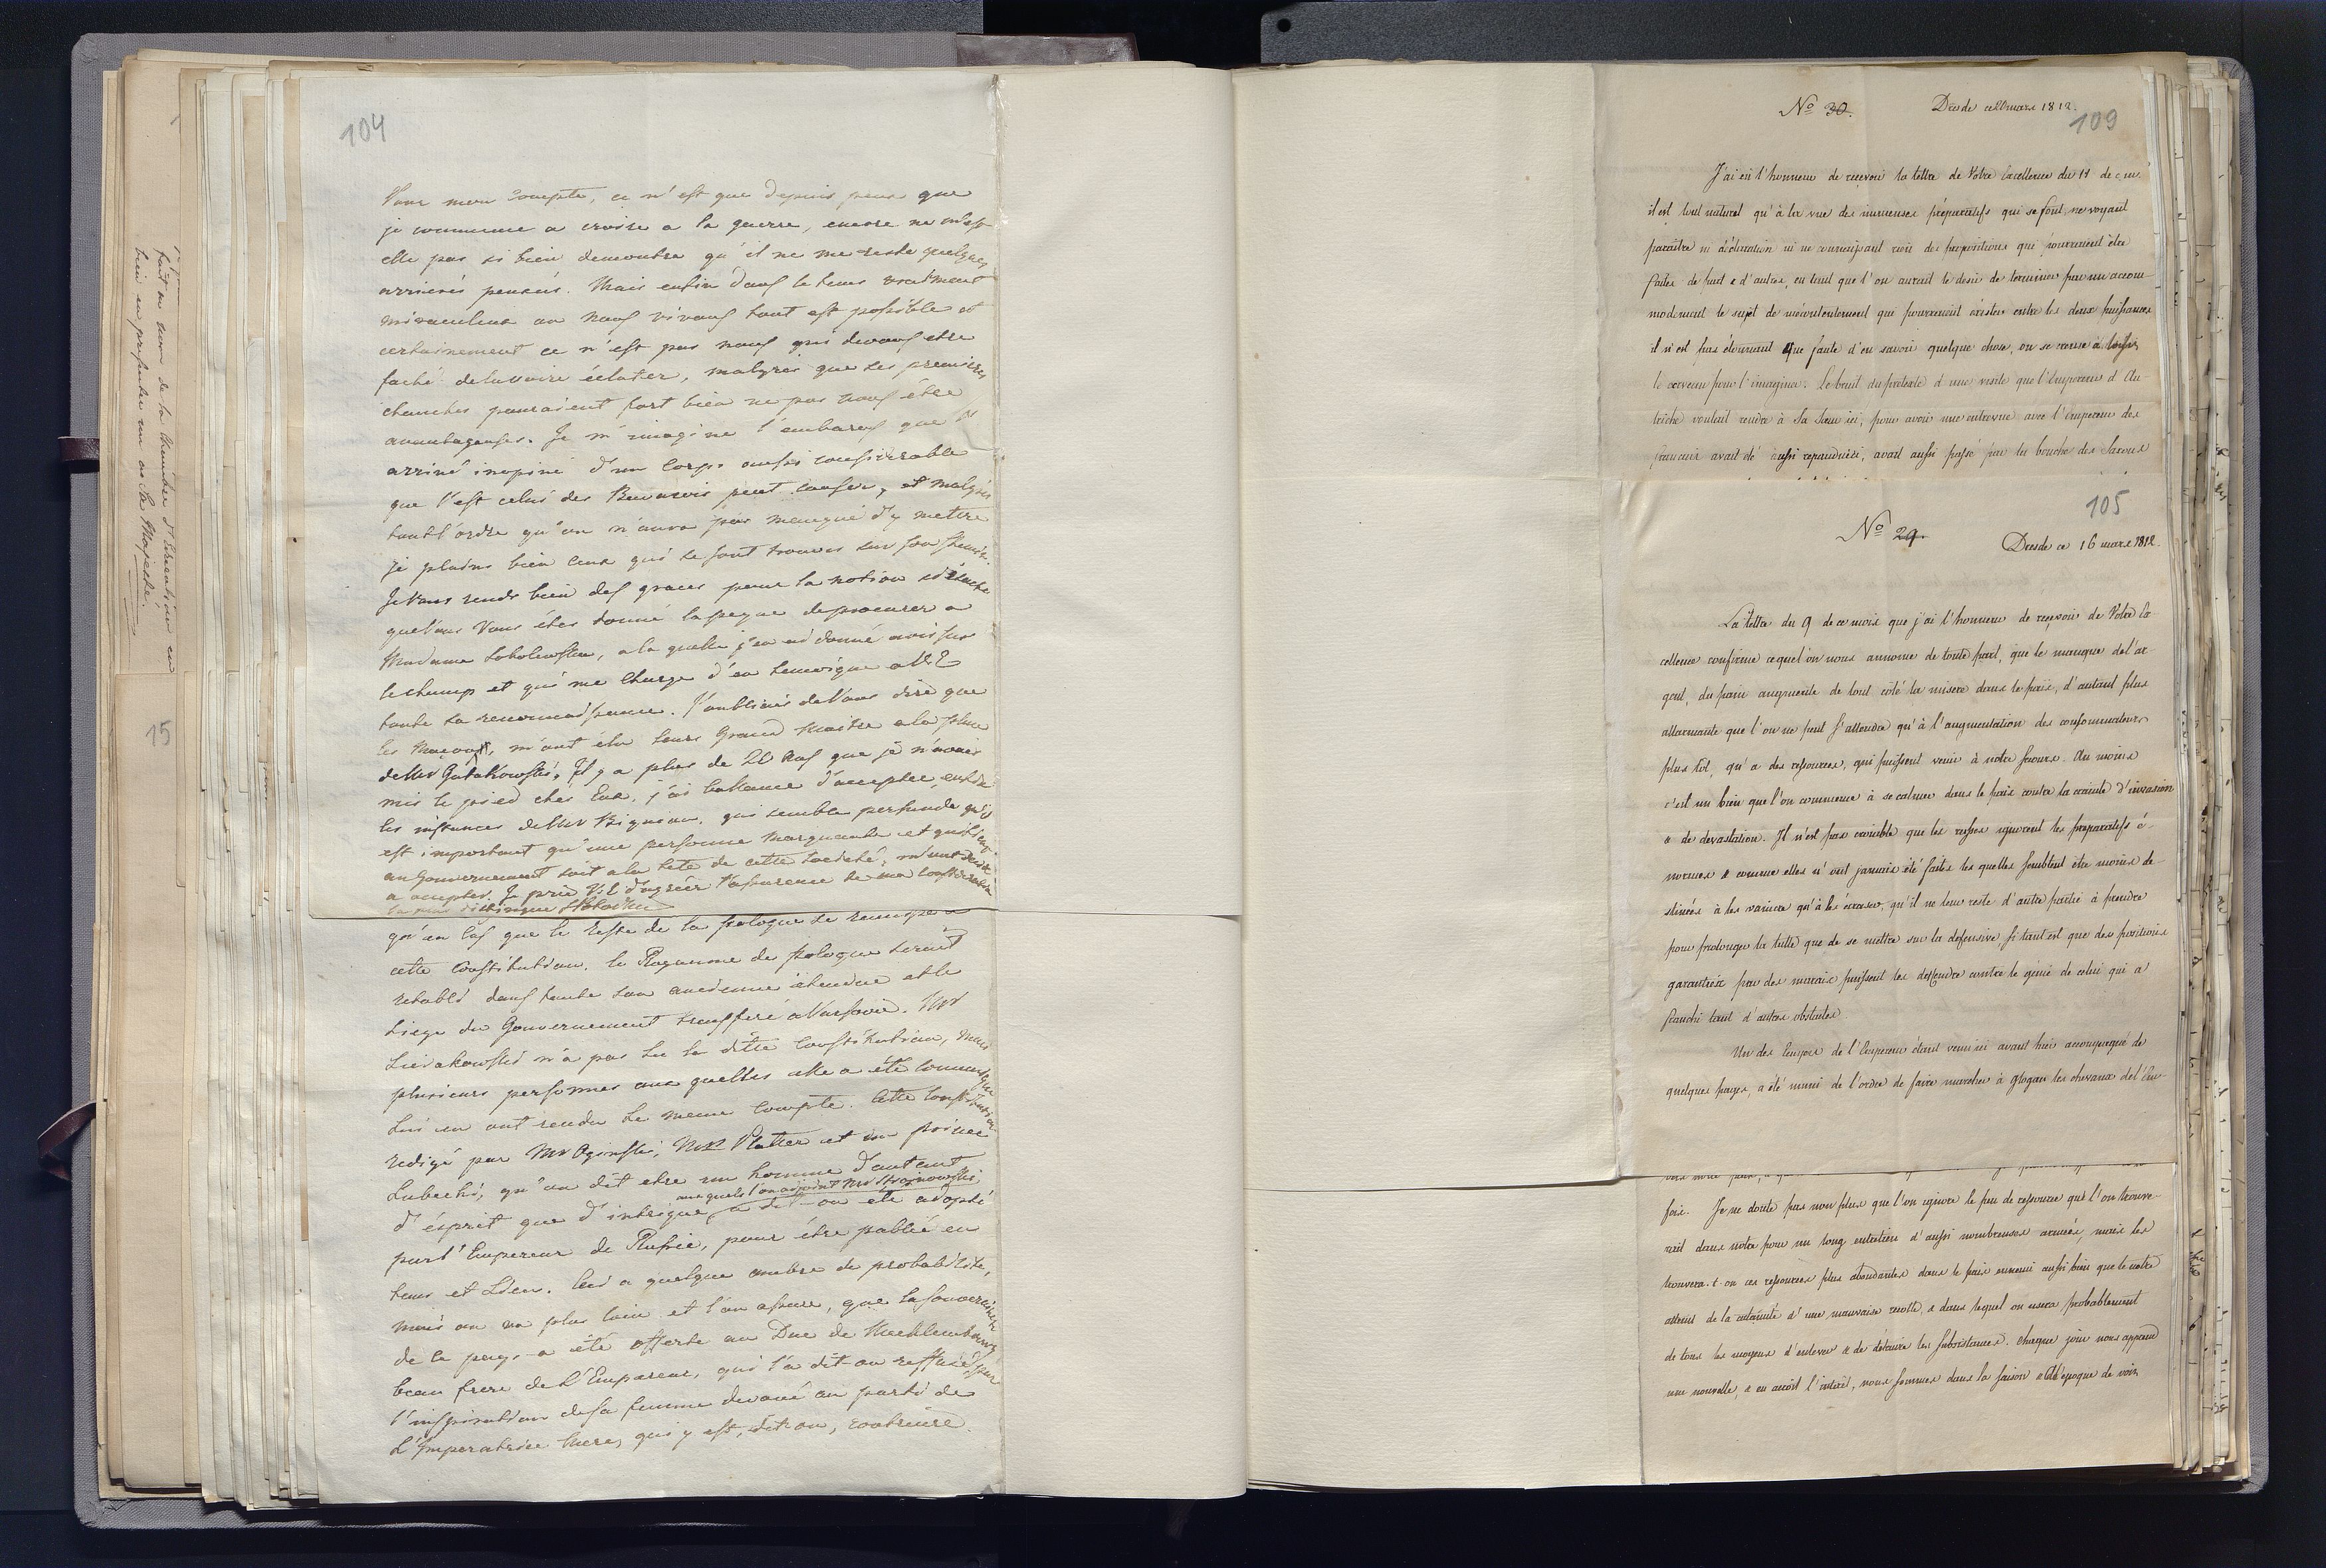 104
Pour mon compte, ce n'est que depuis peu que
je commence a croire a la guerre, encore ne m'est
elle pas si bien demontre qu'il ne me reste quelques
arrierés pensés. Mais enfin dans le tems vraiment
miraculeux ou nous vivons tout est possible et
certainement ce n'est pas nous qui devons etre
faché de la voire éclater, malgrés que les premieres
chanches pouraient fort bien ne pas nous être
avantageuses. Je m'imagine l'embaras que
arrivé inopiné d'un Corps aussi considerable
que l'est celui des Bavarois peut causer, et malgrés
tout l'ordre qu'on n'aura pas manqué d'y mettre
je plains bien ceux qui se sont trouves sur son
Je Vous rends bien des graces pour la notion
que Vous Vous étes donné la peyne de procurer a
Madame Sobolewska, a la quelle j'en ai donné avis sur
le champ et qui me charge d'en temoigner a V: E
toute sa reconnaissance. J'oubliais de Vous dire que
les Maçons, m'ont élu leurs Grand Maitre a la place
de Mr Gutakowski, Il y a plus de 20 Ans que je n'avais
mis le pied chés Eux, j'ai balance d'accepter, enfin
les instances de Mr Bignon, qui semble persuade qu'il
est important qu'une personne marquante et
au Gouvernement soit a la tete de cette société, m'ont
a accepter. Je prie V: E d'agréer l'assurence de ma consideration
la plus distingue
qu'en cas que le reste de la pologne se reunisse a
cette Constitution. le Royaume de pologne serait
retabli dans toute son ancienne étendue et le
siege du Gouvernement transferé a Varsovie. Mr
n'a pas lu la ditte Constitution, mais
plusieurs personnes aux quelles elle a été
lui en ont rendu le meme compte. Cette Constitution
redigé par Mr Oginski, Mr Platter et un prince
Lubecki, qu'on dit etre un homme d'autant
aux quels l'on adjoint Mr
d'ésprit que d'intrigue, a dit-on eté adopté
par l'Empereur de Russie, pour être publié en
tems et Lieu. Ceci a quelque ombre de probabilité,
mais on va plus loin et l'on assure, que la souveraineté
de ce pays a été offerte au Duc de Mecklembourg
beau frere de l'Empereur, qui l'a dit-on reffusé par
l'inspiration de sa femme devoué au parti de
l'Imperatrice Mere, qui y est, dit-on, contraire.
fait au nom de la Chambre d'Education en
lieu en presenter un a Sa Majesté.
15
No 30.
Dresde ce 20 mars 1812.
109
J'ai eû l'honneur de reçevoir la lettre de Votre Excellence du 14 de
il est tout naturel qu'à la vue des immenses préparatifs qui se font, ne voyant
paraitre ni déclaration ni ne connaissant rien des propositions qui pourraient être
faites de part & d'autre, en tant que l'on aurait le desir de terminer par un accom-
modement le sujet de mécontentement qui pourraient éxister entre les deux puissances
il n'est pas étonnant que faute d'en savoir quelque chose, on se creuse à loisir
le cerveau pour l'imaginer. Le bruit du prétexte d'une visite que l'Empereur d'Au-
triche voulait rendre à sa Sœur ici, pour avoir une entrevue avec l'Empereur des
français avait été aussi repandu ici, avait aussi passé par la bouche des Saxons
105
No 29.
Dresde ce 16 mars 1812.
La lettre du 9 de ce mois que j'ai l'honneur de reçevoir de Votre Ex-
cellence confirme ce que l'on nous annonce de toute part, que le manque de l'ar-
gent, du pain augmente de tout coté la misere dans le païs, d'autant plus
allarmante que l'on ne peut s'attendre qu'à l'augmentation des consommateurs
plus tôt, qu'a des ressources, qui puissent venir à notre secours. Au moins
c'est un bien que l'on commence à se calmer dans le païs contre la crainte d'invasion
& de devastation. Il n'est pas croiable que les russes ignorent les preparatifs é-
normes & comme elles n'ont jamais été faites les quelles semblent être moins de-
stinées à les vaincre qu'à les écraser, qu'il ne leur reste d'autre partie à prendre
pour prolonger la lutte que de se mettre sur la défensive, si tant est que des positions
garanties par des marais puissent les deffendre contre le génie de celui qui a
franchi tant d'autres obstacles.
Un des Ecuyers de l'Empereur étant venu ici avant hier accompagné de
quelques pages, a été muni de l'ordre de faire marcher à Glogau les chevaux de l'Em-
fois. Je ne doute pas non plus que l'on ignore le peu de ressource que l'on trouve-
rait dans notre pour un long entretien d'aussi nombreuses armées, mais les
trouvera-t-on ces ressources plus abondantes dans le païs ennemi aussi bien que le notre
atteint de la calamité d'une mauvaise recolte, & dans lequel on usera probablement
de tous les moyens d'enlever & de détruire les subsistances. Chaque jour nous apprend
une nouvelle, & en accroit l'intérêt, nous sommes dans la saison & à l'époque de voir